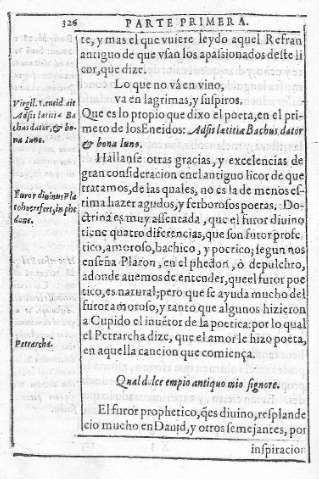 326
PARTE PRIMERA.
te, y mas el que vuiere leydo aquel Refran
antiguo de que vsan los apassionados deste li
cor, que dize.
Lo que no vá en vino,
va en lagrimas, y suspiros.
Que es lo propio que dixo el poeta, en el pri
meto de los Eneidos: Adsis lætitiæ Bachus dator
& bona Iuno.
Hallanse otras gracias, y excelencias de
gran consideracion en el antiguo licor de que
tratamos, de las quales, no es la de menos es-
tima hazer agudos, y ferborosos poetas. Do-
ctrina es muy assentada, que el furor diuino
tiene quatro diferencias, que son furor profe
tico, amoroso, bachico, y poetico; segun nos
enseña Platon, en el phedon, ò de pulchro,
adonde auemos de entender, que el furor poe
tico, es natural; pero que se ayuda mucho del
furor amoroso, y tanto que algunos hizieron
a Cupido el inuētor de la poetica: por lo qual
el Petrarcha dize, que el amor le hizo poeta,
en aquella cancion que comiença.
Qual dulce empio antiquo mio signore.
El furor prophetico, q̃es diuino, resplande
cio mucho en Dauid, y otros semejantes, por
inspiracion
Virgil. 1. eneid ait
Adsis lætitiæ Ba
chus dator, & bo-
na Iuno.
Furor diuinus Pla
to hoc refert, in phe
done.
Petrarcha.